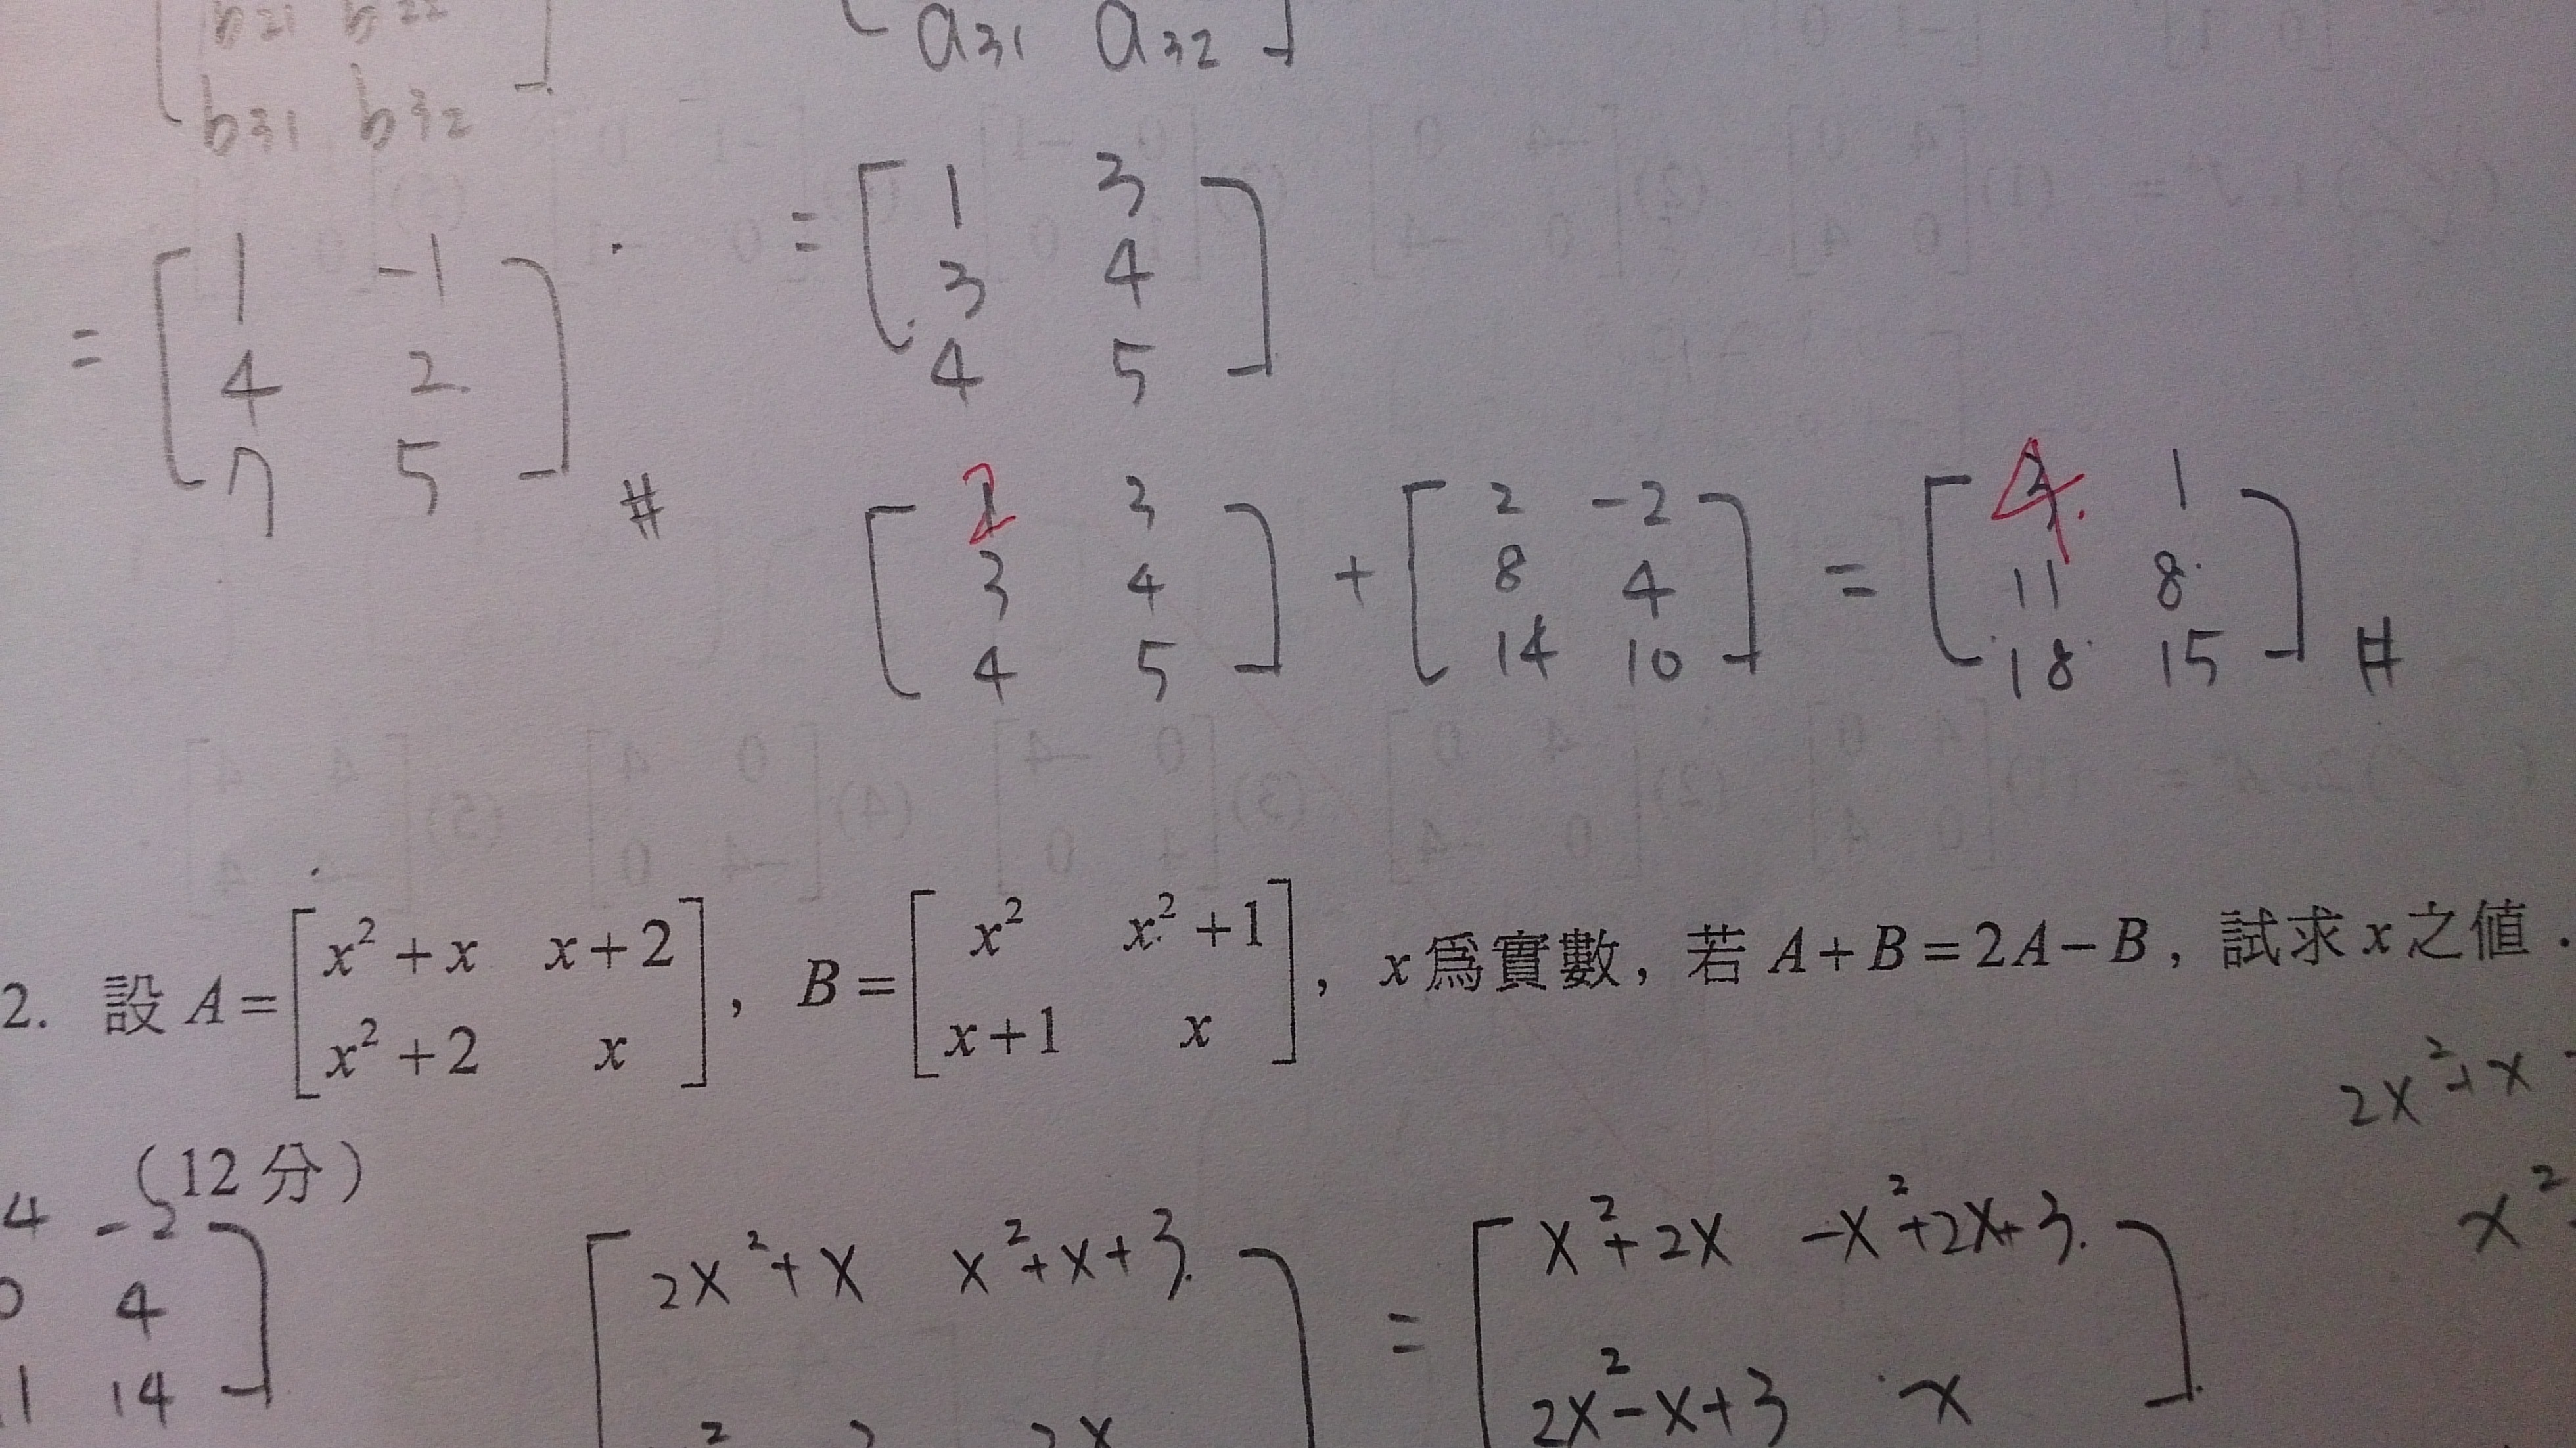 b21 b22
b31 b32
a31 a32
= [ 1 -1
4 2
7 5 ] #
= [ 1 3
3 4
4 5 ]
[ 2 3
3 4
4 5 ] + [ 2 -2
8 4
14 10 ] = [ 4 1
11 8
18 15 ] #
2. 設 A = [ x² + x x + 2
x² + 2 x ] , B = [ x² x² + 1
x + 1 x ] , x 為實數, 若 A + B = 2A − B , 試求 x 之值 .
(12 分)
2x² + x
x²
4 -2
4
1 14 ]
[ 2x² + x x² + x + 3
2x ] = [ x² + 2x -x² + 2x + 3
2x² - x + 3 x ]